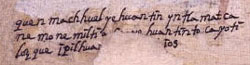 quen machhuel yehuantin yntlamatca
ne mone miltia huantin to cayoti
loz que ipilhua
ios